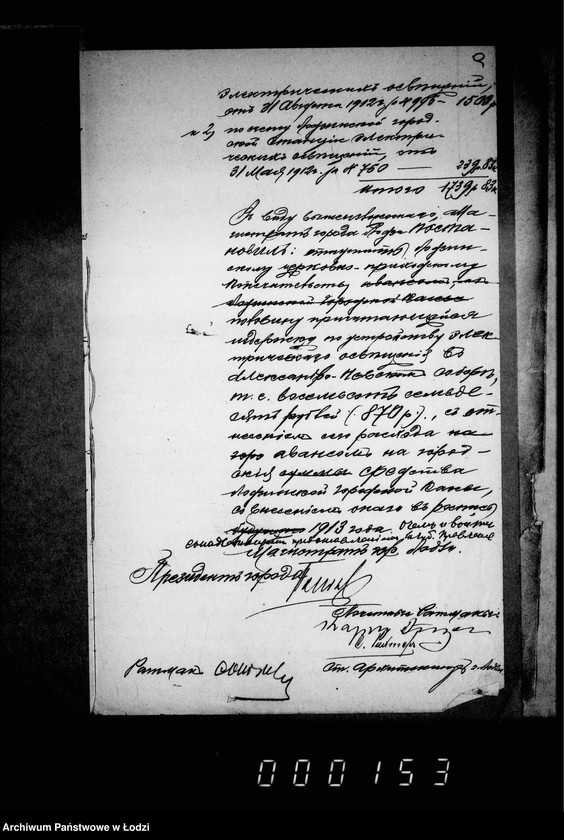 электрическимъ освѣщеніемъ,
отъ 31 Августа 1912 г. № 4996 — 1500 р
и 2) по счету Лодзинской город-
ской станціи электри-
ческихъ освѣщеній, отъ
31 Мая 1912 г. за № 750 — 239 р 83 к
Итого 1739 р 83 к
Въ виду вышеизложеннаго, Ма-
гистратъ города Лодзи поста-
новилъ: отпустить Лодзин-
скому церковно-приходскому
попечительству авансомъ, изъ
Лодзинской Городской Кассы
половину причитающейся
издержки по устройству элек-
трическаго освѣщенія въ
Александро-Невскомъ Соборѣ,
т. е. восемьсотъ семьде-
сятъ рублей (870 р.), съ от-
несеніемъ сего расхода на
авансомъ на город-
скія суммы средства
Лодзинской Городской Кассы,
со внесеніемъ онаго въ роспись
будущаго 1913 года. О чемъ и войти
съ представленіемъ въ Губ. Правленіе
Магистратъ гор. Лодзи.
Президентъ города
Почетные Ратманы:
Ратманъ
Ст. Архитекторъ г. Лодзи
000153
Archiwum Państwowe w Łodzi